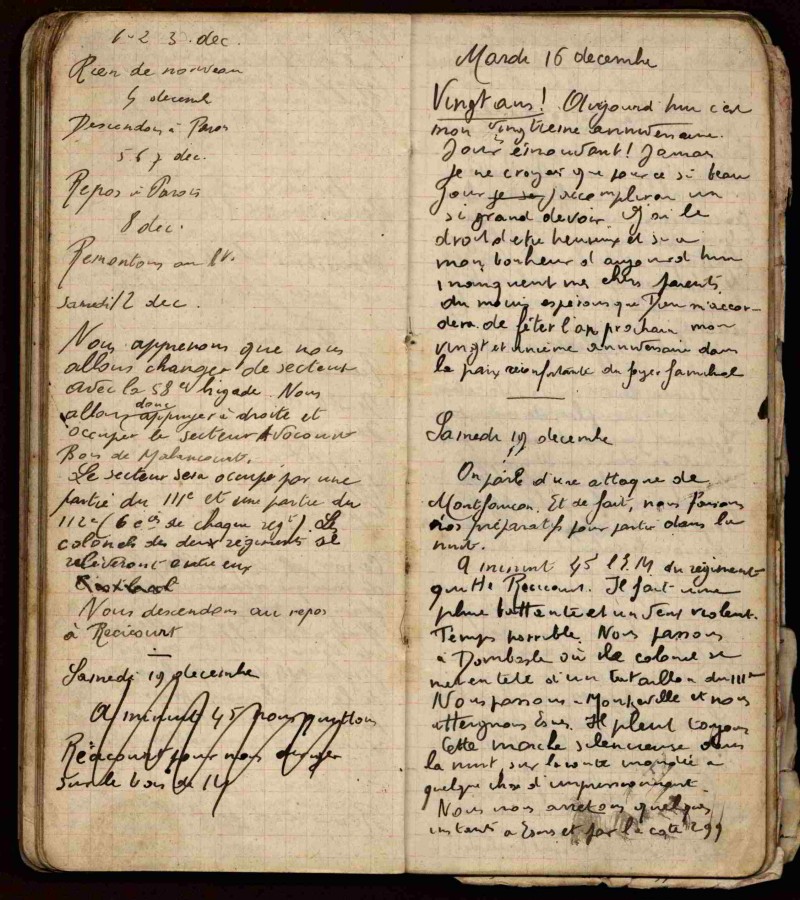 1-2 3. dec.
Rien de nouveau
4 decemb
Descendons à Parois
5 6 7 dec.
Repos à Parois
8 dec.
Remontons au
Samedi 12 dec.
Nous apprenons que nous
allons changer de secteur
avec la 58e brigade. Nous
allons donc appuyer à droite et
occuper le secteur Avocourt
Bois de Malancourt.
Le secteur sera occupé par une
partie du 111e et une partie du
112e (6 cies de chaque regt). Les
colonels des deux régiments se
relèveront entre eux
Nous descendons au repos
à Récicourt
Samedi 19 decembre
A minuit 45 nous quittons
Récicourt pour nous
sur le bois de
Mardi 16 decembre
Vingt ans! Aujourd hui c'est
mon vingtieme anniversaire.
Jour émouvant! Jamais
je ne croyais que pour ce si beau
jour je j'accomplirai un
si grand devoir. J'ai le
droit d'etre heureux et si a
mon bonheur d'aujourd hui
manquent mes chers parents
du moins esperons que Dieu m'accor-
dera de fêter l'an prochain mon
vingt et unieme anniversaire dans
la paix réconfortante du foyer familial
Samedi 19 decembre
On parle d'une attaque de
Montfaucon. Et de fait, nous faisons
nos préparatifs pour partir dans la
nuit.
A minuit 45 l'E.M. du régiment
quitte Recicourt. Il fait une
pluie battante et un vent violent.
Temps horrible. Nous passons
à Dombasle où le colonel se
met en tete d'un bataillon du 111e
Nous passons à Montzeville et nous
atteignons Esnes. Il pleut toujours
Cette marche silencieuse dans
la nuit, sur la route inondée a
quelque chose d'impressionnant.
Nous nous arretons quelques
instants a Esnes et par la cote 299